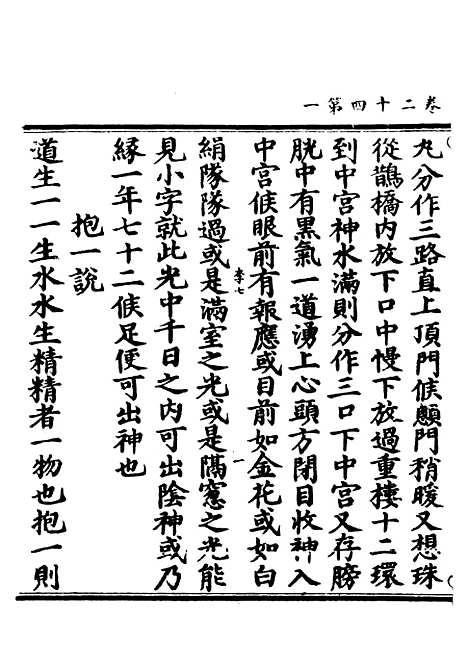 卷二十四第一
丸分作三路直上頂門候顖門稍暖又想珠
從鵲橋内放下口中慢下放過重樓十二環
到中宮神水滿則分作三口下中宮又存膀
胱中有黑氣一道湧上心頭方閉目收神入
中宮候眼前有報應或目前如金花或如白
李七
一
絹隊隊過或是滿室之光或是隔窻之光能
見小字就此光中千日之内可出陰神或乃
縁一年七十二候足便可出神也
抱一說
道生一一生水水生精精者一物也抱一則